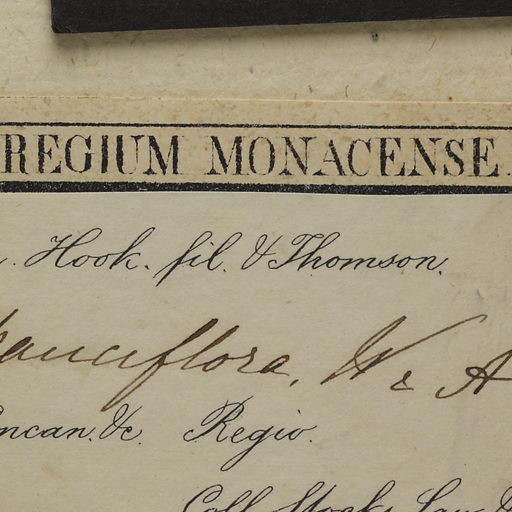 REGIUM MONACENSE.
Hook. fil. & Thomson.
pauciflora, W & A
ncan. &c. Regio.
Coll. Stocks, Law